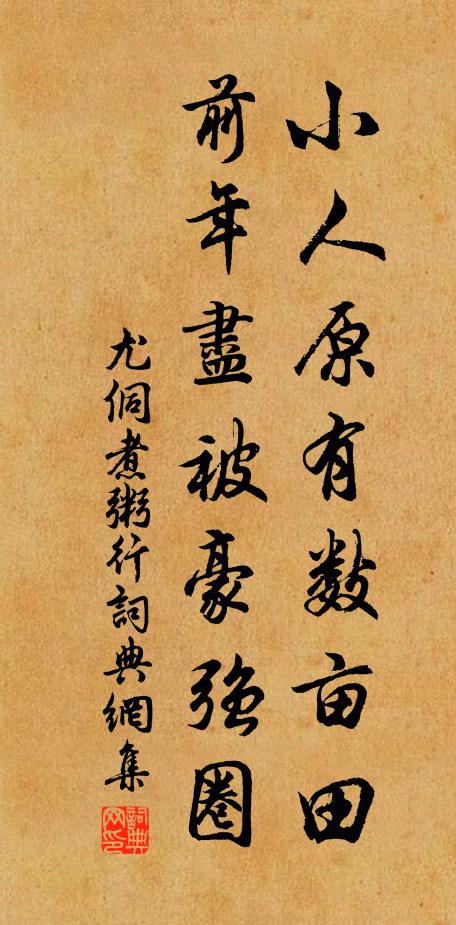 小人原有数亩田
前年盡被豪強圈
尤侗煮粥行詞典網集
詞典网印